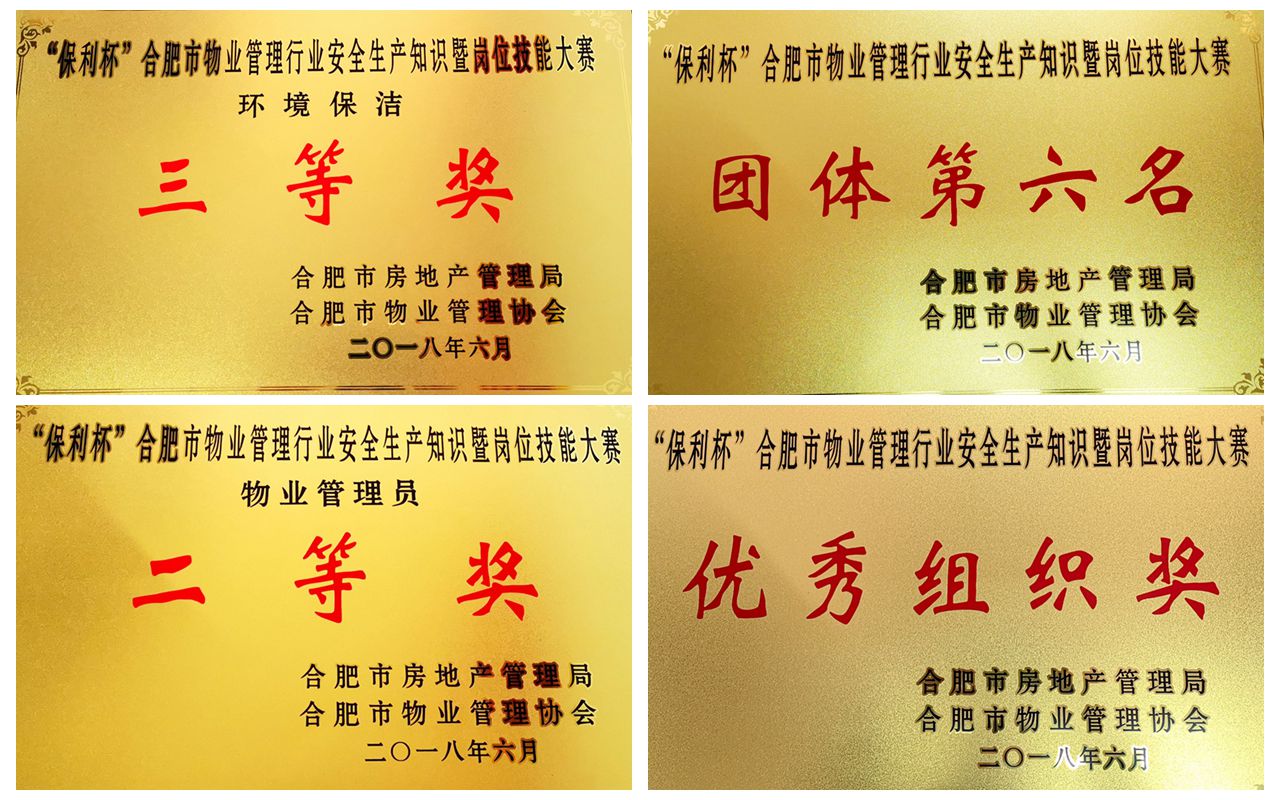 “保利杯”合肥市物业管理行业安全生产知识暨岗位技能大赛
环境保洁
三等奖
合肥市房地产管理局
合肥市物业管理协会
二〇一八年六月
“保利杯”合肥市物业管理行业安全生产知识暨岗位技能大赛
团体第六名
合肥市房地产管理局
合肥市物业管理协会
二〇一八年六月
“保利杯”合肥市物业管理行业安全生产知识暨岗位技能大赛
物业管理员
二等奖
合肥市房地产管理局
合肥市物业管理协会
二〇一八年六月
“保利杯”合肥市物业管理行业安全生产知识暨岗位技能大赛
优秀组织奖
合肥市房地产管理局
合肥市物业管理协会
二〇一八年六月